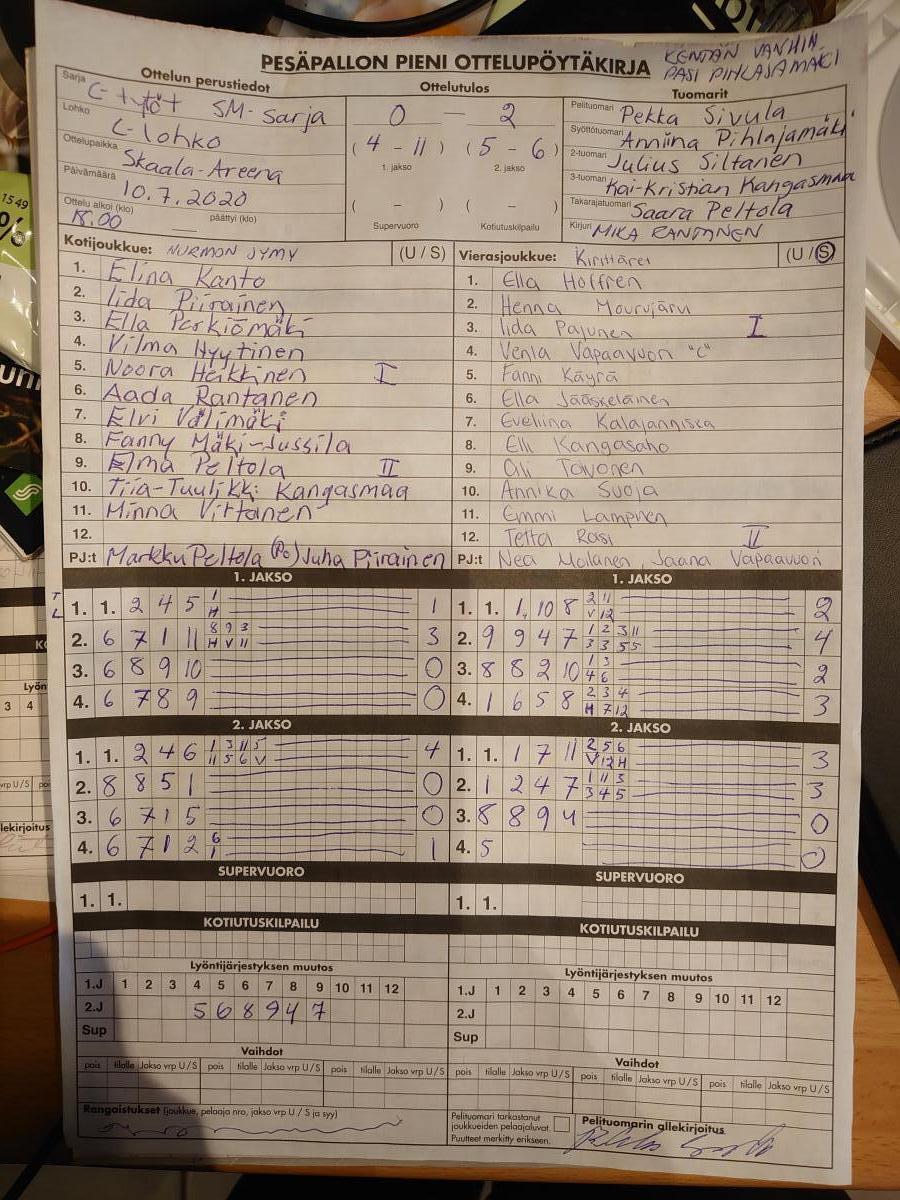 PESÄPALLON PIENI OTTELUPÖYTÄKIRJA
KENTÄN VANHIN
PASI PIHLAJAMÄKI
Ottelun perustiedot
Sarja C-tytöt SM-sarja
Lohko C-lohko
Ottelupaikka Skaala-Areena
Päivämäärä 10.7.2020
Ottelu alkoi (klo) 18.00 päättyi (klo)
Ottelutulos
0 — 2
(4 - 11) (5 - 6)
1. jakso 2. jakso
( - ) ( - )
Supervuoro Kotiutuskilpailu
Tuomarit
Pelituomari Pekka Sivula
Syöttötuomari Anniina Pihlajamäki
2-tuomari Julius Siltanen
3-tuomari Kai-Kristian Kangasmaa
Takarajatuomari Saara Peltola
Kirjuri MIKA RANTANEN
Kotijoukkue: NURMON JYMY (U / S)
1. Elina Kanto
2. Iida Piirainen
3. Ella Perkiömäki
4. Vilma Hyytinen
5. Noora Heikkinen I
6. Aada Rantanen
7. Elvi Välimäki
8. Fanny Mäki-Jussila
9. Elma Peltola II
10. Tiia-Tuulikki Kangasmaa
11. Minna Virtanen
12.
PJ:t Markku Peltola (Po) Juha Piirainen
Vierasjoukkue: Kirittäret (U / S)
1. Ella Holffren
2. Henna Mourujärvi
3. Iida Pajunen I
4. Venla Vapaavuori "C"
5. Fanni Käyrä
6. Ella Jääskeläinen
7. Eveliina Kalajanniska
8. Elli Kangasaho
9. Oili Toivonen
10. Annika Suoja
11. Emmi Lampinen
12. Tetta Rasi II
PJ:t Nea Moilanen, Jaana Vapaavuori
1. JAKSO
T
L
1. 1. 2 4 5 1 H 1
2. 6 7 1 11 8 9 3 H V 11 3
3. 6 8 9 10 0
4. 6 7 8 9 0
2. JAKSO
1. 1. 2 4 6 1 3 11 5 11 5 6 V 4
2. 8 8 5 1 0
3. 6 7 1 5 0
4. 6 7 1 2 6 1 1
SUPERVUORO
1. 1.
KOTIUTUSKILPAILU
Lyöntijärjestyksen muutos
1.J 1 2 3 4 5 6 7 8 9 10 11 12
2.J 5 6 8 9 4 7
Sup
Vaihdot
pois tilalle Jakso vrp U / S pois tilalle Jakso vrp U / S pois tilalle Jakso vrp U / S
Rangaistukset (joukkue, pelaaja nro, jakso vrp U / S ja syy)
1. JAKSO
1. 1. 1, 10 8 2 11 V 12 2
2. 9 9 4 7 1 2 3 11 3 3 5 5 4
3. 8 8 2 10 1 3 4 6 2
4. 1 6 5 8 2 3 4 H 7 12 3
2. JAKSO
1. 1. 1 7 11 2 5 6 V 12 H 3
2. 1 2 4 7 1 11 3 3 4 5 3
3. 8 8 9 4 0
4. 5 0
SUPERVUORO
1. 1.
KOTIUTUSKILPAILU
Lyöntijärjestyksen muutos
1.J 1 2 3 4 5 6 7 8 9 10 11 12
2.J
Sup
Vaihdot
pois tilalle Jakso vrp U / S pois tilalle Jakso vrp U / S pois tilalle Jakso vrp U / S
Pelituomari tarkastanut
joukkueiden pelaajaluvat.
Puutteet merkitty erikseen.
Pelituomarin allekirjoitus